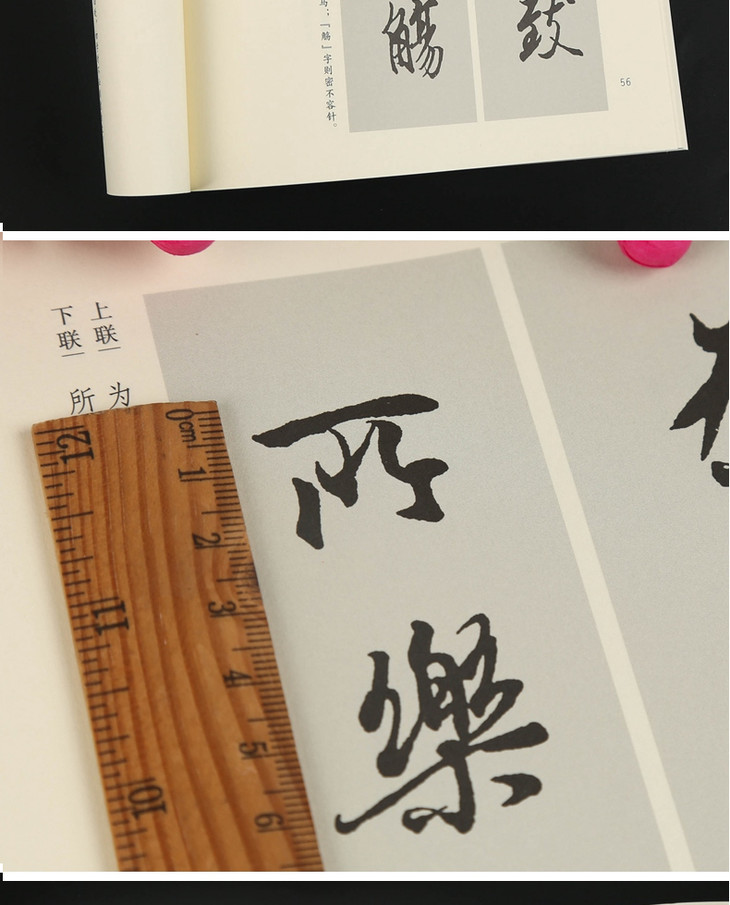 「觞」字则密不容针。
觴
致
56
上联
下联
为
所
所
樂
0cm 1 2 3 4 5 6
12 11 10